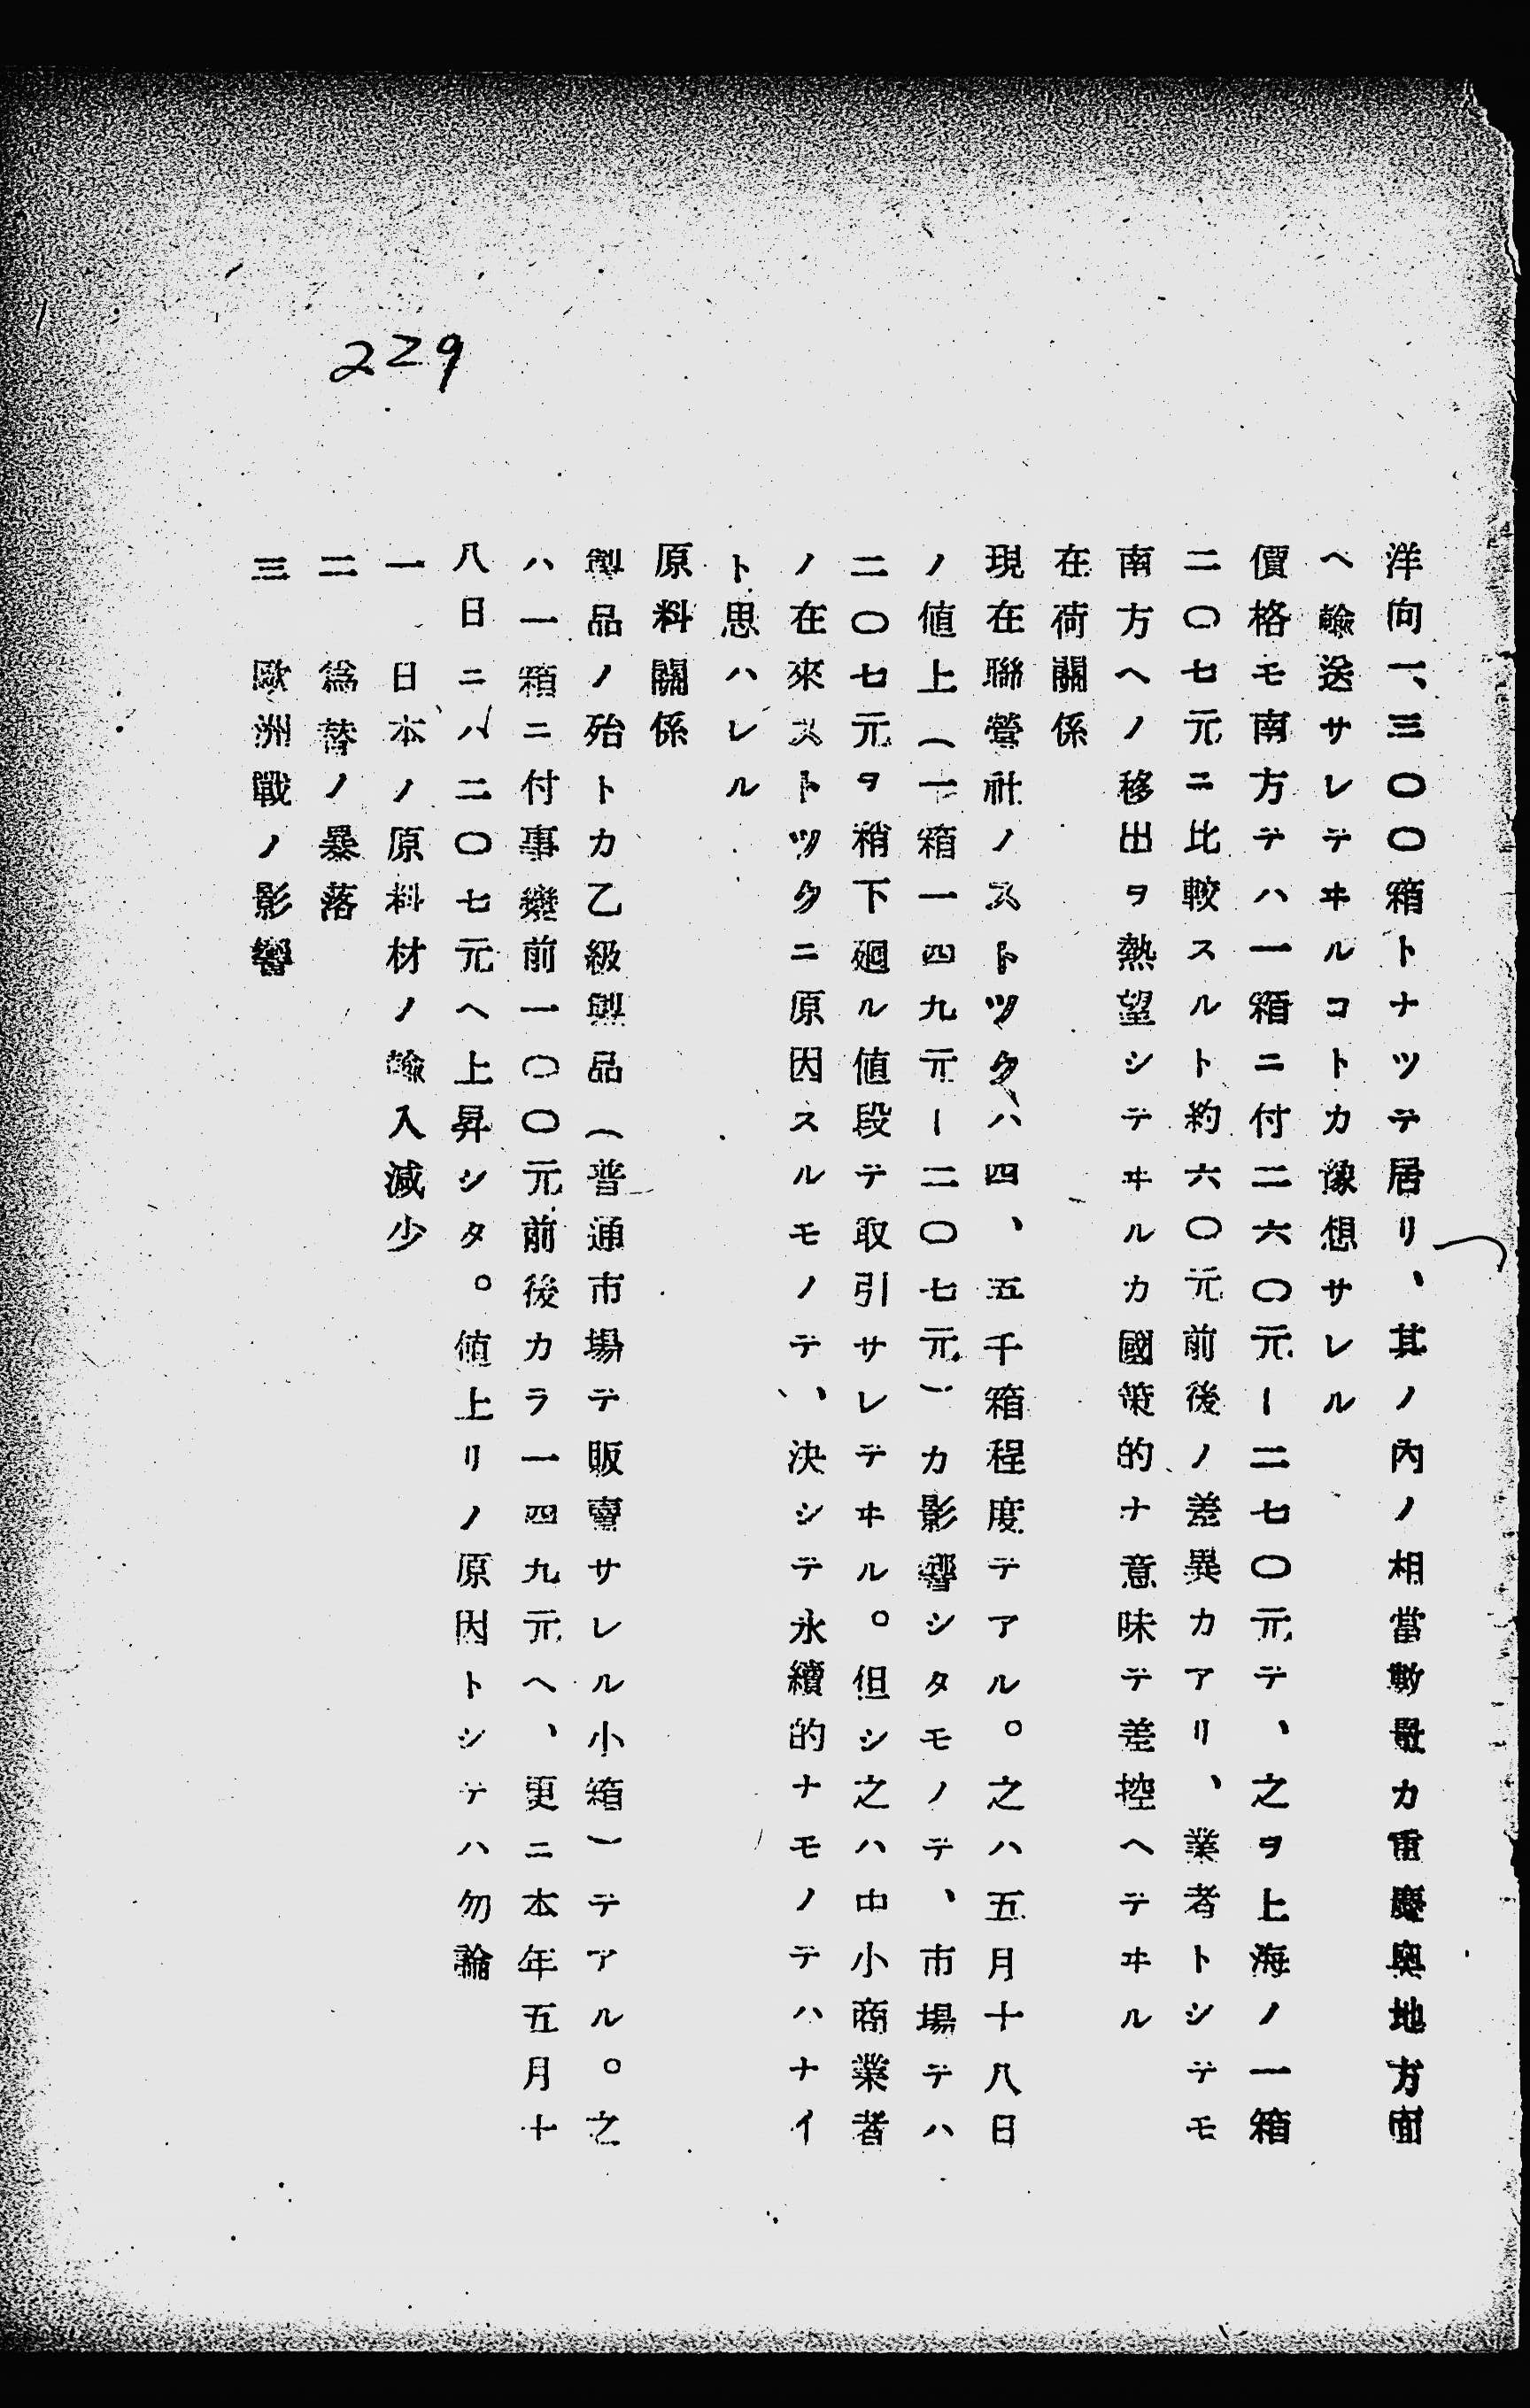 229
洋向一、三〇〇箱トナツテ居リ、其ノ內ノ相當數量カ重慶奧地方面
ヘ輸送サレテヰルコトカ豫想サレル
價格モ南方テハ一箱ニ付二六〇元ー二七〇元テ、之ヲ上海ノ一箱
二〇七元ニ比較スルト約六〇元前後ノ差異カアリ、業者トシテモ
南方ヘノ移出ヲ熱望シテヰルカ國策的ナ意味テ差控ヘテヰル
在荷關係
現在聯營社ノストツクハ四、五千箱程度テアル。之ハ五月十八日
ノ値上（一箱一四九元ー二〇七元）カ影響シタモノテ、市場テハ
二〇七元ヲ稍下廻ル値段テ取引サレテヰル。但シ之ハ中小商業者
ノ在來ストツクニ原因スルモノテ、決シテ永續的ナモノテハナイ
ト思ハレル
原料關係
製品ノ殆トカ乙級製品（普通市場テ販賣サレル小箱）テアル。之
ハ一箱ニ付事變前一〇〇元前後カラ一四九元ヘ、更ニ本年五月十
八日ニハ二〇七元ヘ上昇シタ。値上リノ原因トシテハ勿論
一　日本ノ原料材ノ輸入減少
二　爲替ノ暴落
三　歐洲戰ノ影響